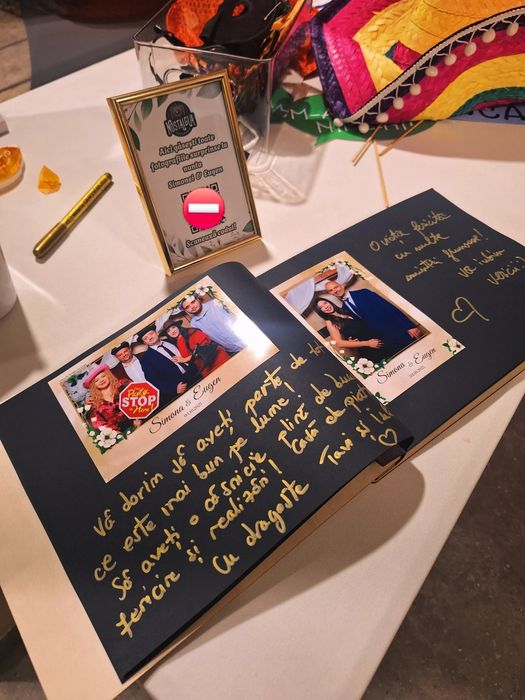 NOSTALGIA
Aici găsești toate
fotografiile surprinse la
nunta
Simonei & Eugen
Scanează codul!
O viață fericită
cu multe
amintiri frumoase!
Vă iubim
Simona & Eugen
Party
STOP
Simona & Eugen
Vă dorim să aveți parte de tot
ce este mai bun pe lume!
Să aveți o căsnicie plină de
fericire și realizări! Casă de piatră
Cu dragoste Tavi și